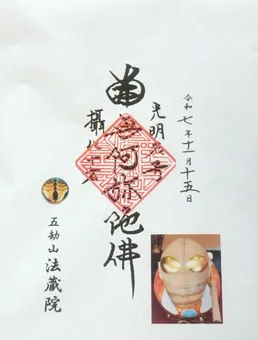 令和七年十一月十五日
光明名号
南無阿弥陀佛
攝化十方
五劫山
法蔵院